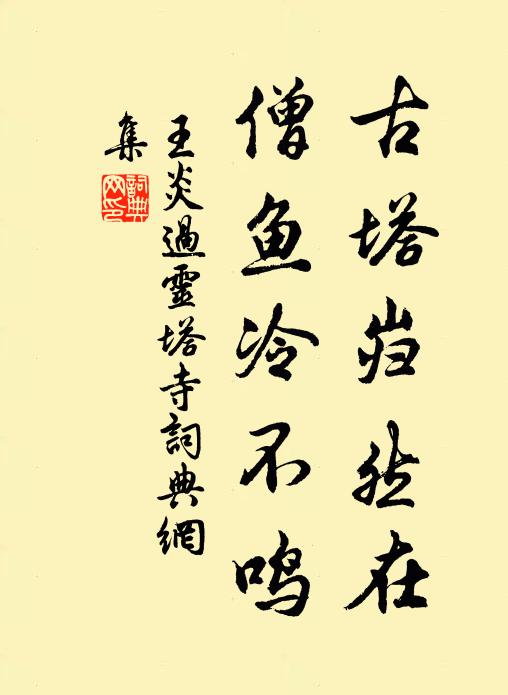 古塔岿然在
僧鱼冷不鸣
王炎過靈塔寺詞典網
集
詞典
网印